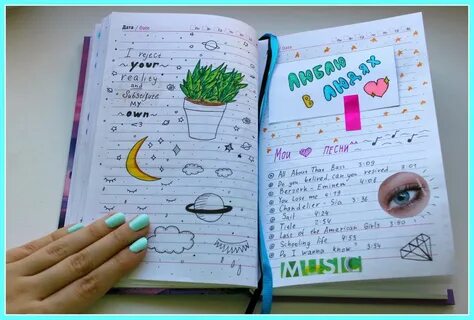 Дата / Date
I reject
~ your ~
reality
and
Substitute
MY
~ own ~
<3
/ Date
ЛЮБЛЮ
В ЛЮДЯХ
Мои ПЕСНИ
All About That Bass 3:09
Do you belived can you resived 3:01
Berserk - Eminem 4:06
You Lose me - 4:19
Chandelier - Sia 3:36
Sail 4:24
Title - 2:54
Last of the American Girls 3:51
Schooling life 4:55
Do I wanna know? - 3:34
MUSIC